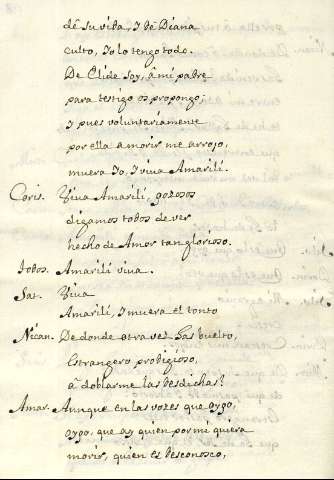 de su vida, y de Diana
culto, Yo lo tengo todo.
De Elide soy, â mi padre
para testigo os propongo;
y pues voluntariamente
por ella a morir me arrojo,
muera Yo, y viva Amarili.
Coris. Viva Amarili, gozosos
digamos todos de ver
hecho de Amor tan glorioso.
todos. Amarili viva.
Sat. Viva
Amarili, y muera el tonto
Nican. De donde otra vez has buelto,
Estrangero prodigioso,
â doblarme las desdichas?
Amar. Aunque en las vozes que oygo,
oygo, que ay quien por mi quiera
morir, quien es desconosco,